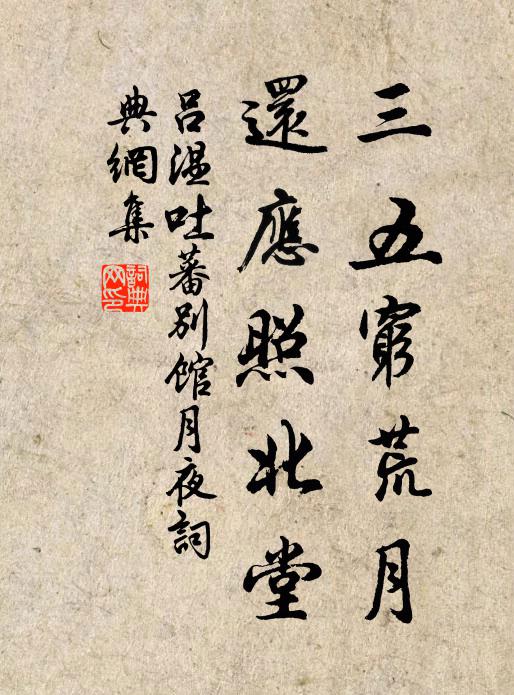 三五窮荒月
還應照北堂
呂溫吐蕃別館月夜詞
典網集
詞典網印